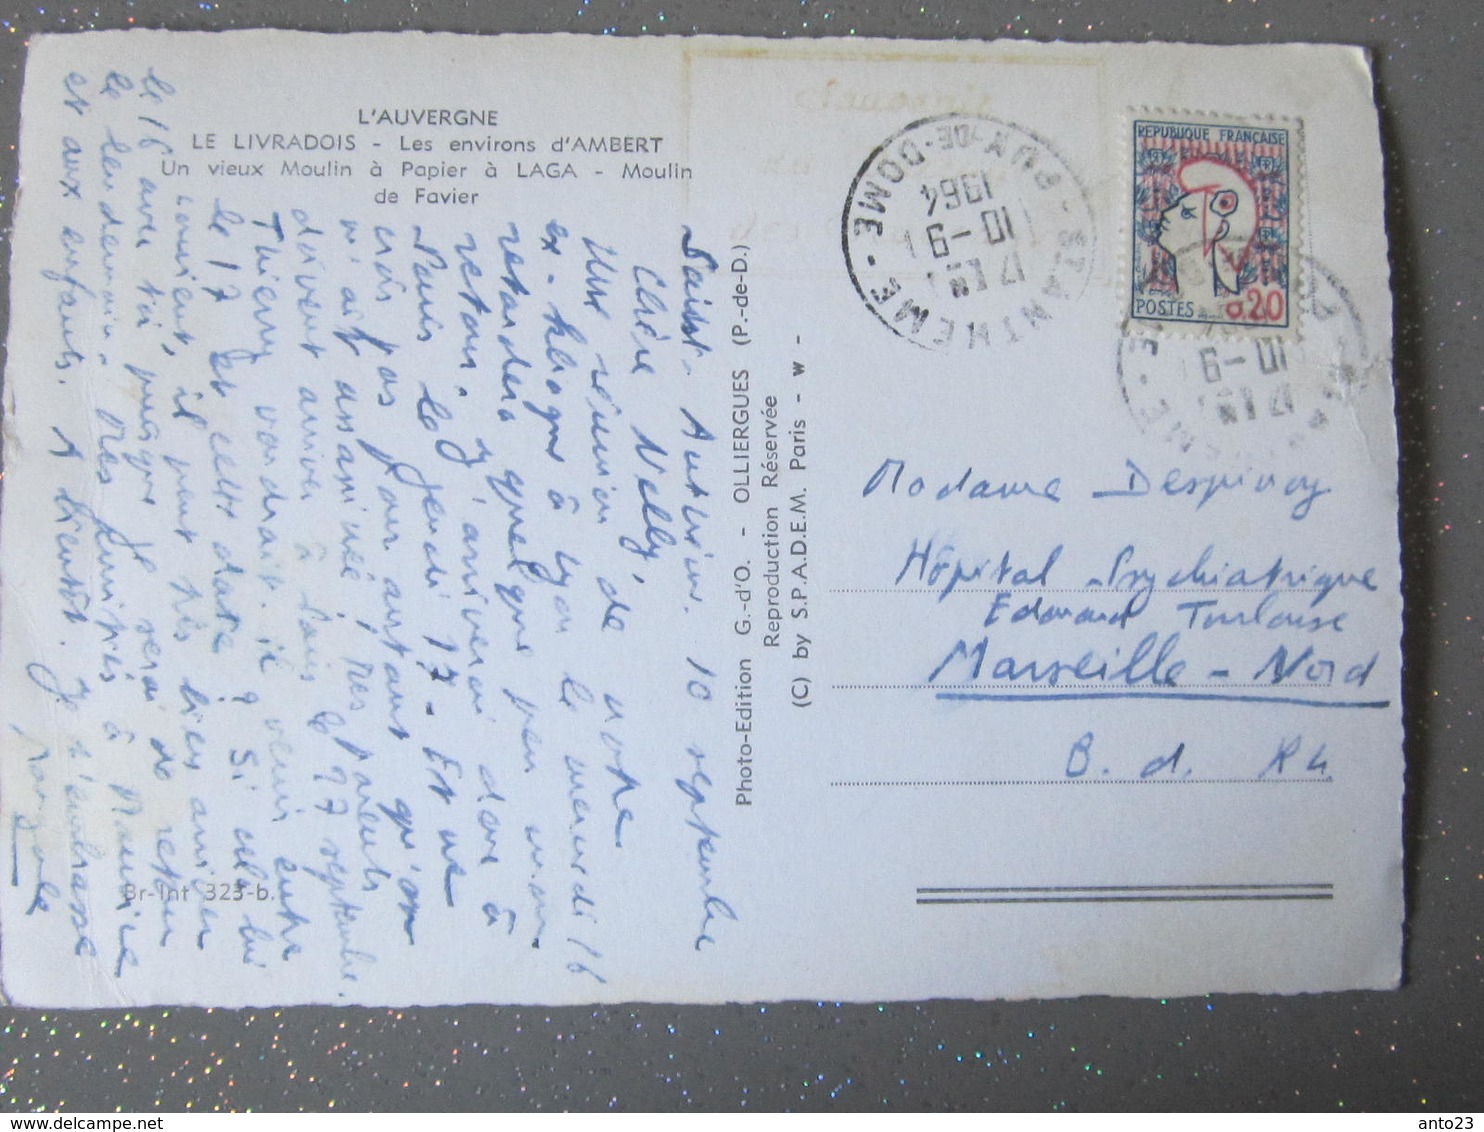 L'AUVERGNE
LE LIVRADOIS - Les environs d'AMBERT
Un vieux Moulin à Papier à LAGA - Moulin
de Favier
Saint- 10 septembre
Chère Nelly,
Une réunion de notre
à Lyon le mercredi 16
retardera quelque peu mon
retour. J'arriverai donc à
Paris le jeudi 17. Et ne
crois pas pour autant qu'on
m'ait assassinée ; mes parents
doivent arriver à Paris le 17 septembre.
Thierry voudrait-il venir entre
le 17 et cette date ? Si cela lui
convient, il peut très bien arriver
le 16 avec toi puisque je serai de retour
le lendemain. Mes amitiés à Maurice
et aux enfants. A bientôt. Je t'embrasse
Br-Int 323-b.
Photo-Edition G.-d'O. - OLLIERGUES (P.-de-D.)
Reproduction Réservée
(C) by S.P.A.D.E.M. Paris - w -
ST ANTHEME
PUY-DE-DOME
17 H
10-9
1964
REPUBLIQUE FRANÇAISE
POSTES
0,20
17 H
10-9
Madame Despinoy
Hôpital Psychiatrique
Edouard Toulouse
Marseille - Nord
B. d. R.
anto23